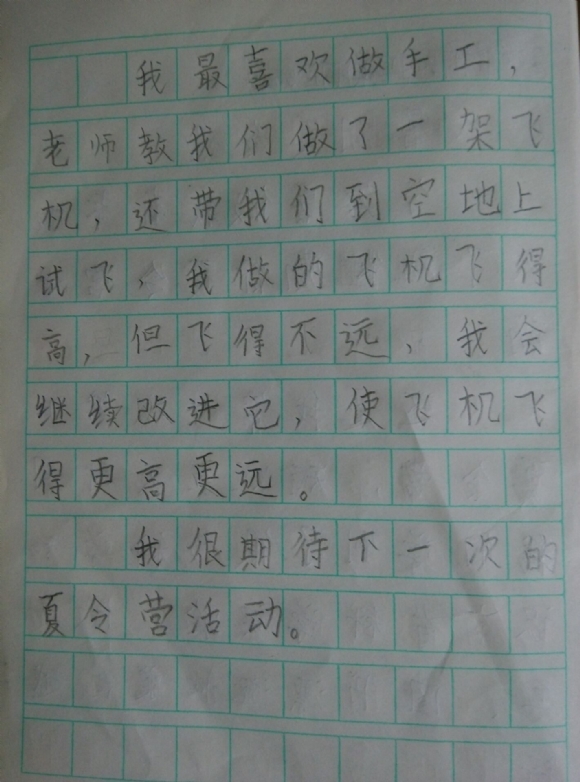 我最喜欢做手工，
老师教我们做了一架飞
机，还带我们到空地上
试飞，我做的飞机飞得
高，但飞得不远，我会
继续改进它，使飞机飞
得更高更远。
我很期待下一次的
夏令营活动。